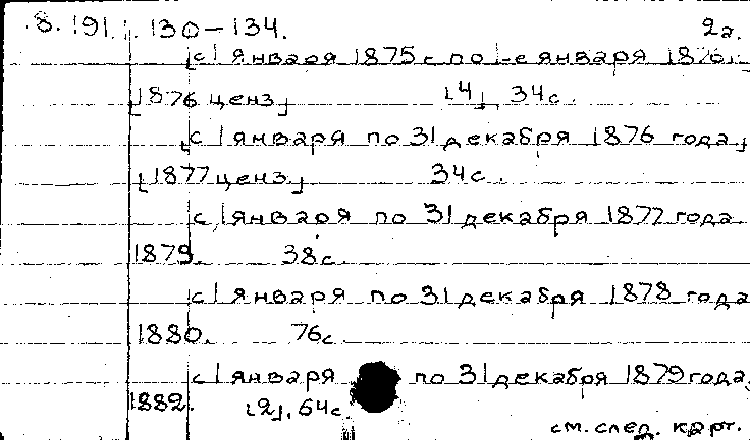 8.191. 130-134. 2а.
с 1 января 1875 г. по 1-е января 1876.
[1876 ценз] [4], 34с.
[с 1 января по 31 декабря 1876 года.]
[1877 ценз.] 34с.
с 1 января по 31 декабря 1877 года.
1879. 38с.
с 1 января по 31 декабря 1878 года
1880. 76с.
с 1 января по 31 декабря 1879 года.
1882. [2], 64с.
см. след. карт.